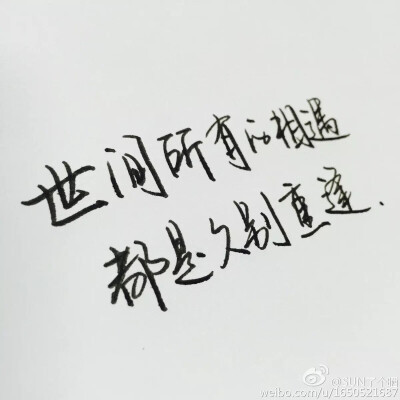 世间所有的相遇
都是久别重逢.
weibo.com/u/1650521687